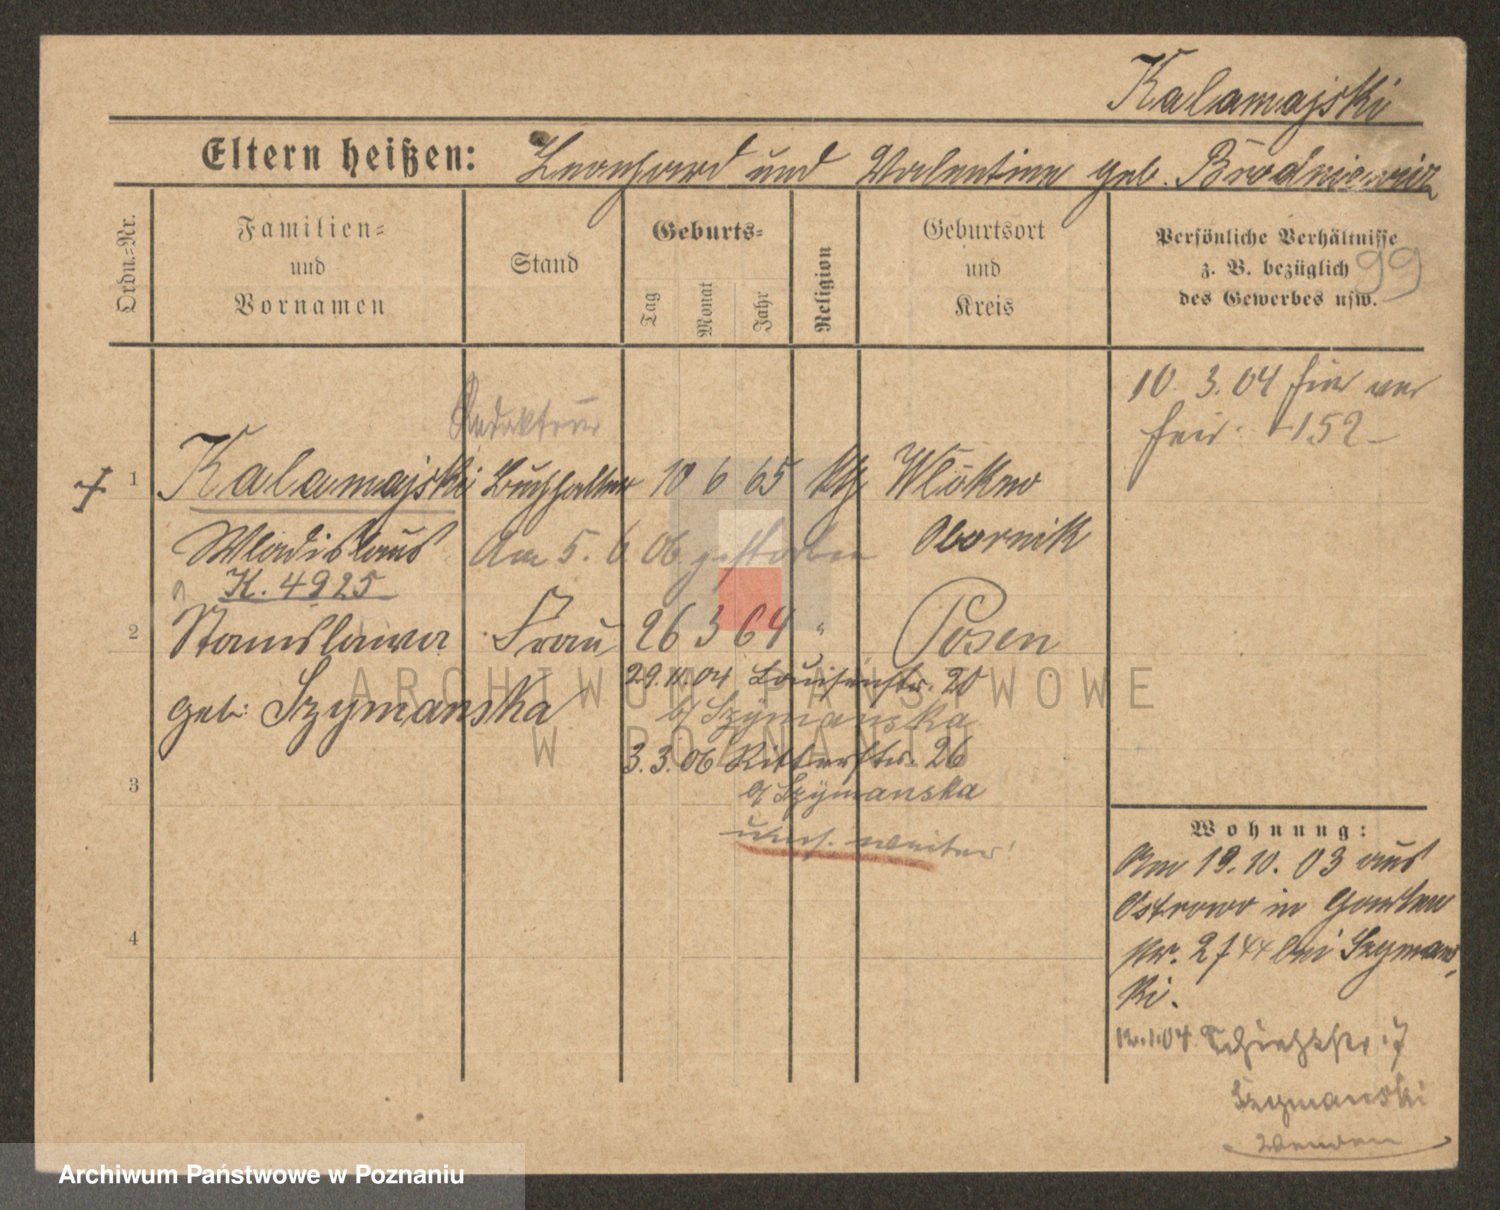 Kalamajski
Eltern heißen: Leonhard und Valentine geb. Brodniewicz
Ordn.-Nr.
Familien- und Vornamen
Stand
Geburts-
Tag Monat Jahr
Religion
Geburtsort und Kreis
Persönliche Verhältnisse
z. B. bezüglich
des Gewerbes usw.
99
10 3.04 hier
152
Redakteur
1 Kalamajski Buchhalter 10 6 65 kth Wlókno
Wladislaus Am 5. 6 06 gestorben Obornik
K. 4925
2 Stanislawa Frau 26 3 64 " Posen
29.11.04 Louisenstr. 20
geb: Szymanska
b/ Szymanska
3.3.06 Ritterstr. 26
b/ Szymanska
3
weiter!
4
Wohnung:
Am 19.10.03 aus
Ostrowo in Garten
str. 2 bei Szymans
ki.
1.04 Schützstr. 7
Szymanski
Wenden
ARCHIWUM PAŃSTWOWE
W POZNANIU
Archiwum Państwowe w Poznaniu